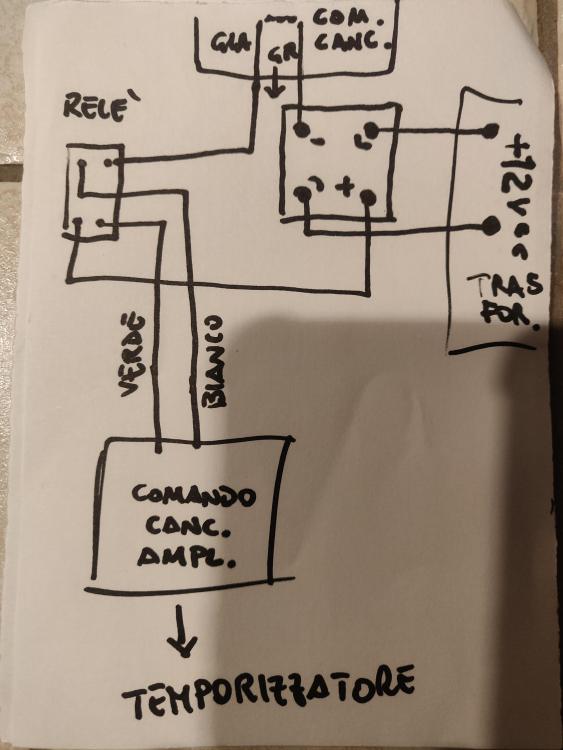 COM.
CANC.
GIA
GR
RELE`
-
+
+12Vcc
TRAS
FOR.
VERDE
BIANCO
COMANDO
CANC.
AMPL.
TEMPORIZZATORE